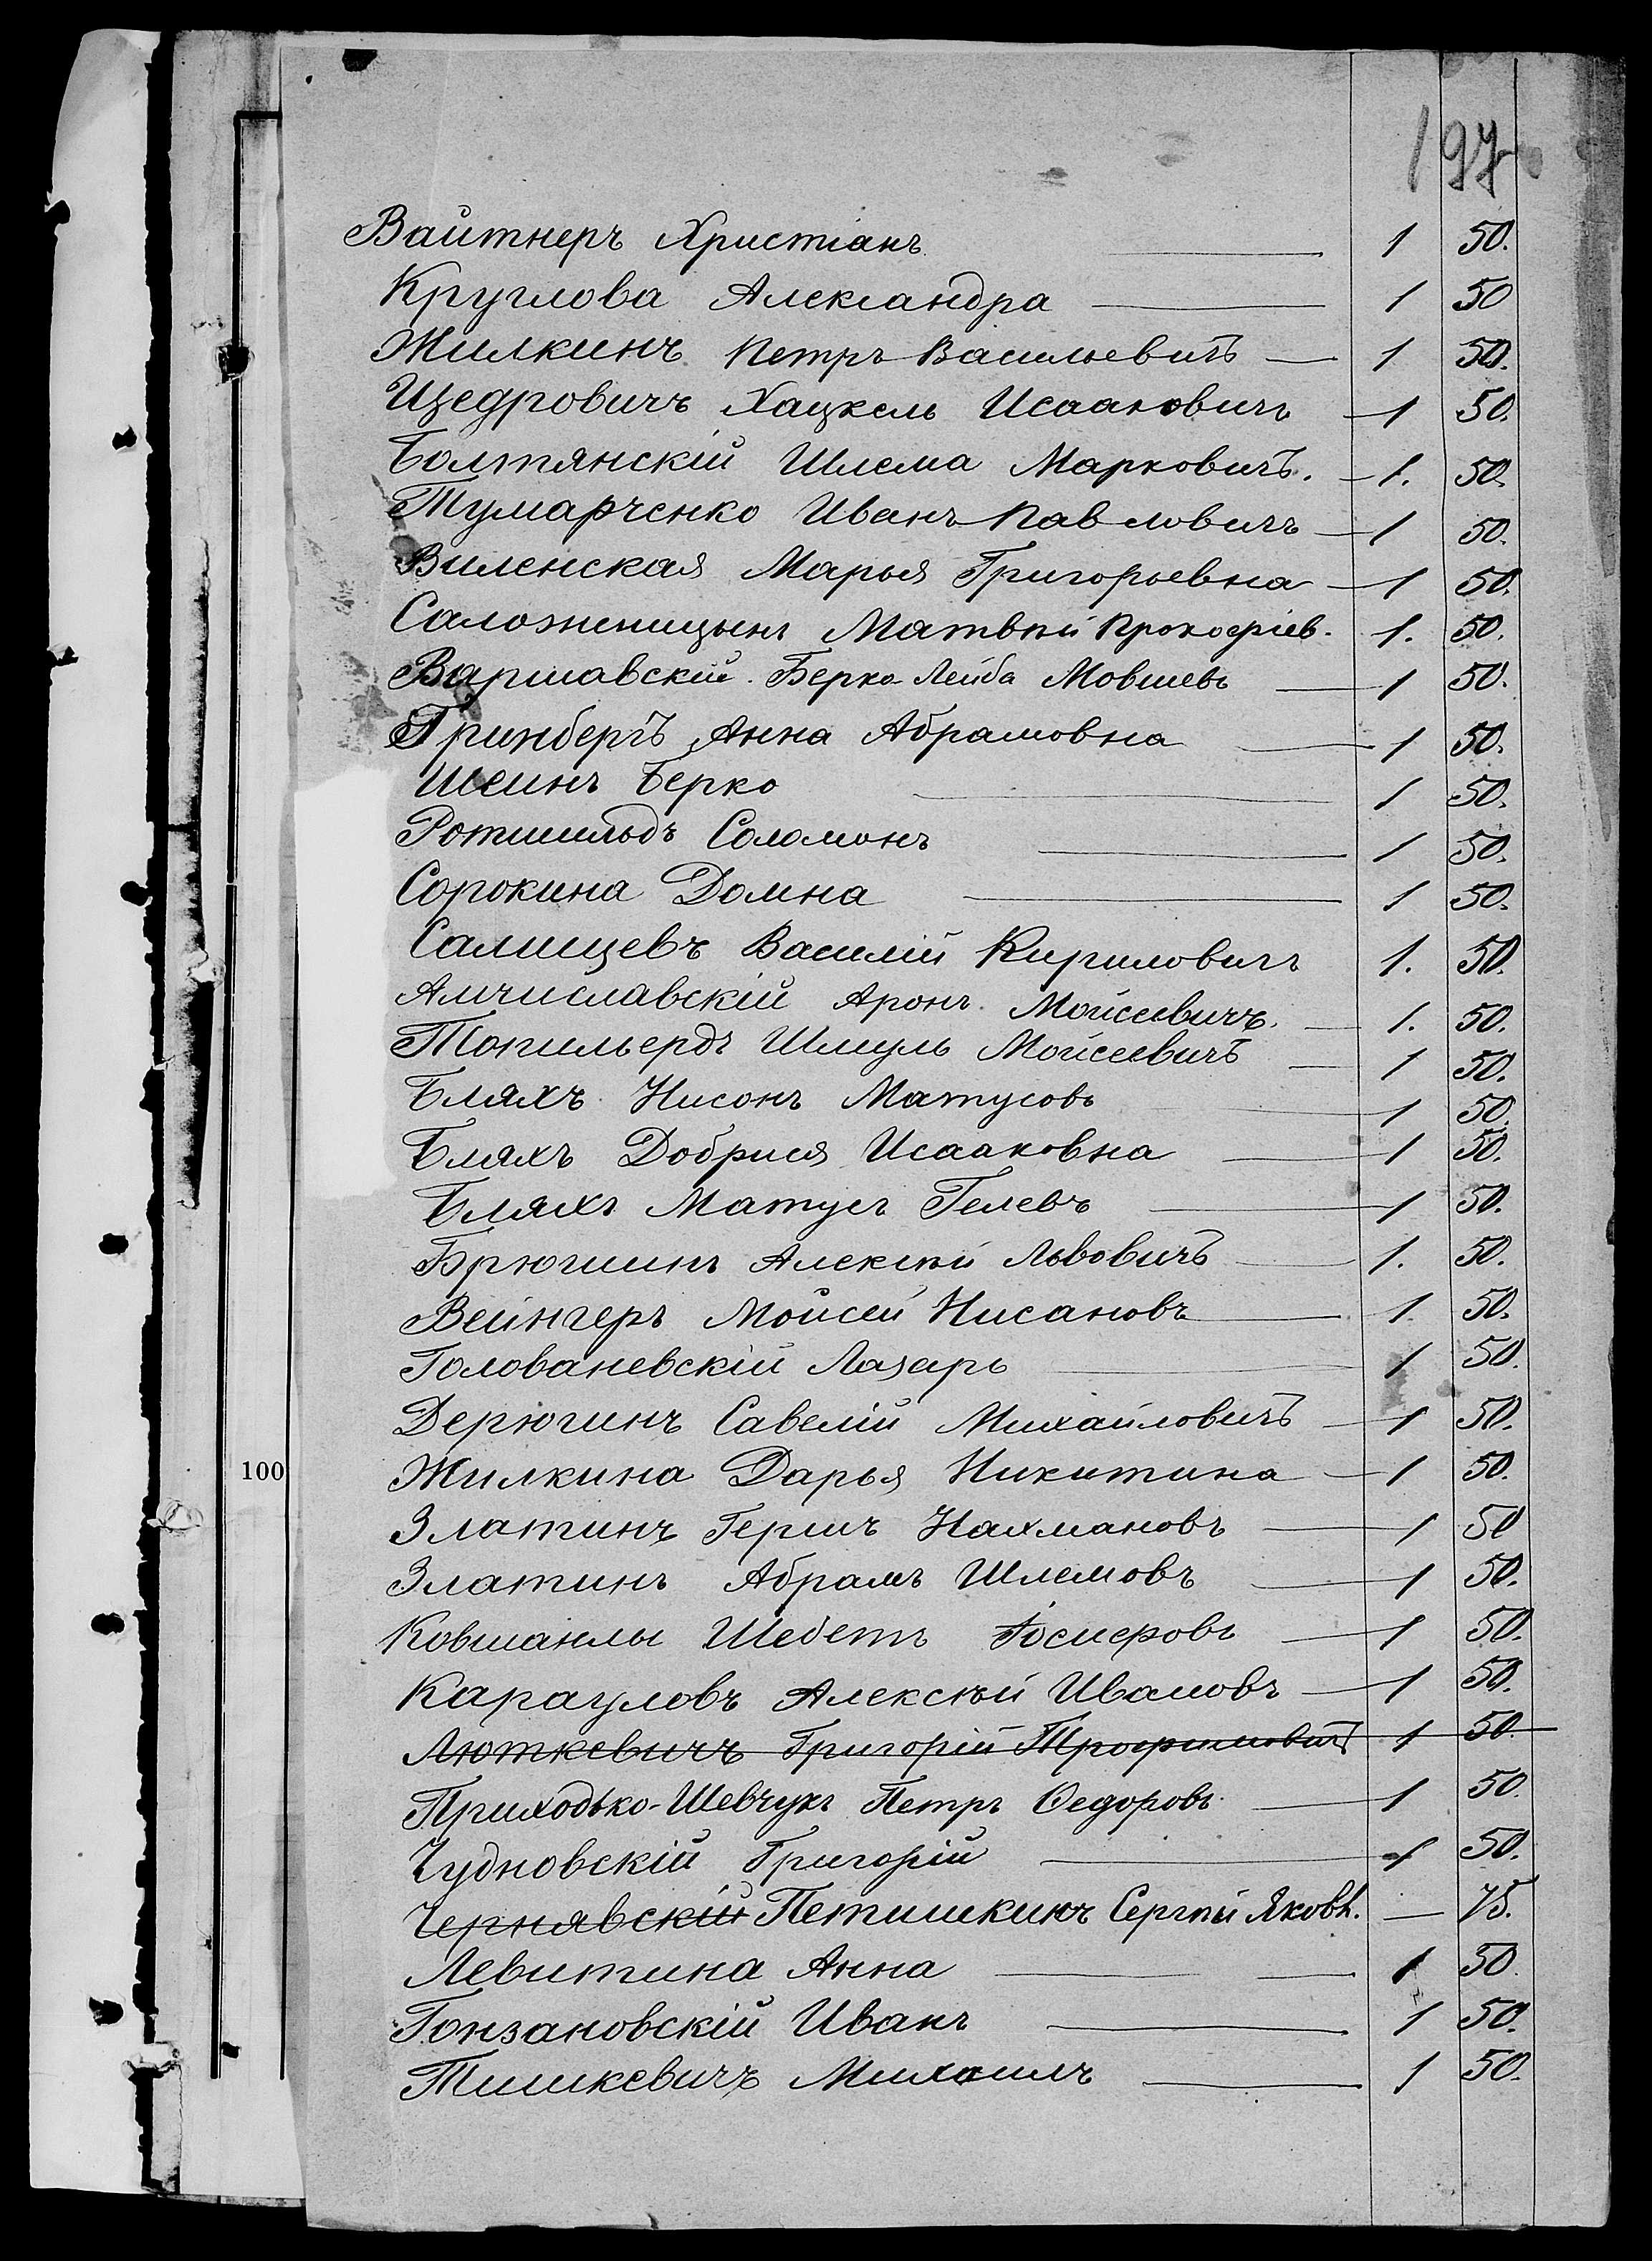 197
Вайтнеръ Христіанъ 1 50.
Круглова Александра 1 50
Жилкинъ Петръ Васильевичъ 1 50.
Щедровичъ Хацкель Исааковичъ 1 50.
Болтянскій Шлема Марковичъ. 1. 50.
Тумарченко Иванъ Павловичъ 1 50.
Виленская Марья Григорьевна 1 50.
Саложеницынъ Матвѣй Прокофіев. 1. 50.
Варшавскій Берко-Лейба Мовшевъ 1 50.
Гринбергъ Анна Абрамовна 1 50.
Шеинъ Берко 1 50.
Ротшильдъ Соломонъ 1 50.
Сорокина Домна 1 50.
Салищевъ Василій Кириловичъ 1. 50.
Амчиславскій Аронъ Мойсеевичъ. 1. 50.
Топильердъ Шмуль Мойсеевичъ 1 50.
Бляхъ Нисонъ Матусовъ 1 50.
Бляхъ Добрися Исааковна 1 50.
Бляхъ Матусъ Гелевъ 1 50.
Брюшинъ Алексѣй Львовичъ 1. 50.
Вейнгеръ Мойсей Нисановъ 1. 50.
Голованевскій Лазарь 1 50.
Дерюгинъ Савелій Михайловичъ 1 50.
Жилкина Дарья Никитина 1 50.
Златинъ Гершъ Нахмановъ 1 50
Златинъ Абрамъ Шлемовъ 1 50.
Ковшанлы Шебетъ Іосифовъ 1 50.
Карауловъ Алексѣй Ивановъ 1 50.
Люткевичъ Григорій Трофимовичъ 1 50.
Приходько-Шевчукъ Петръ Ѳедоровъ 1 50.
Чудновскій Григорій 1 50.
Чернявскій Петишкинъ Сергѣй Яковл. — 75.
Левитина Анна 1 50.
Гонзановскій Иванъ 1 50.
Тишкевичъ Михаилъ 1 50.
100